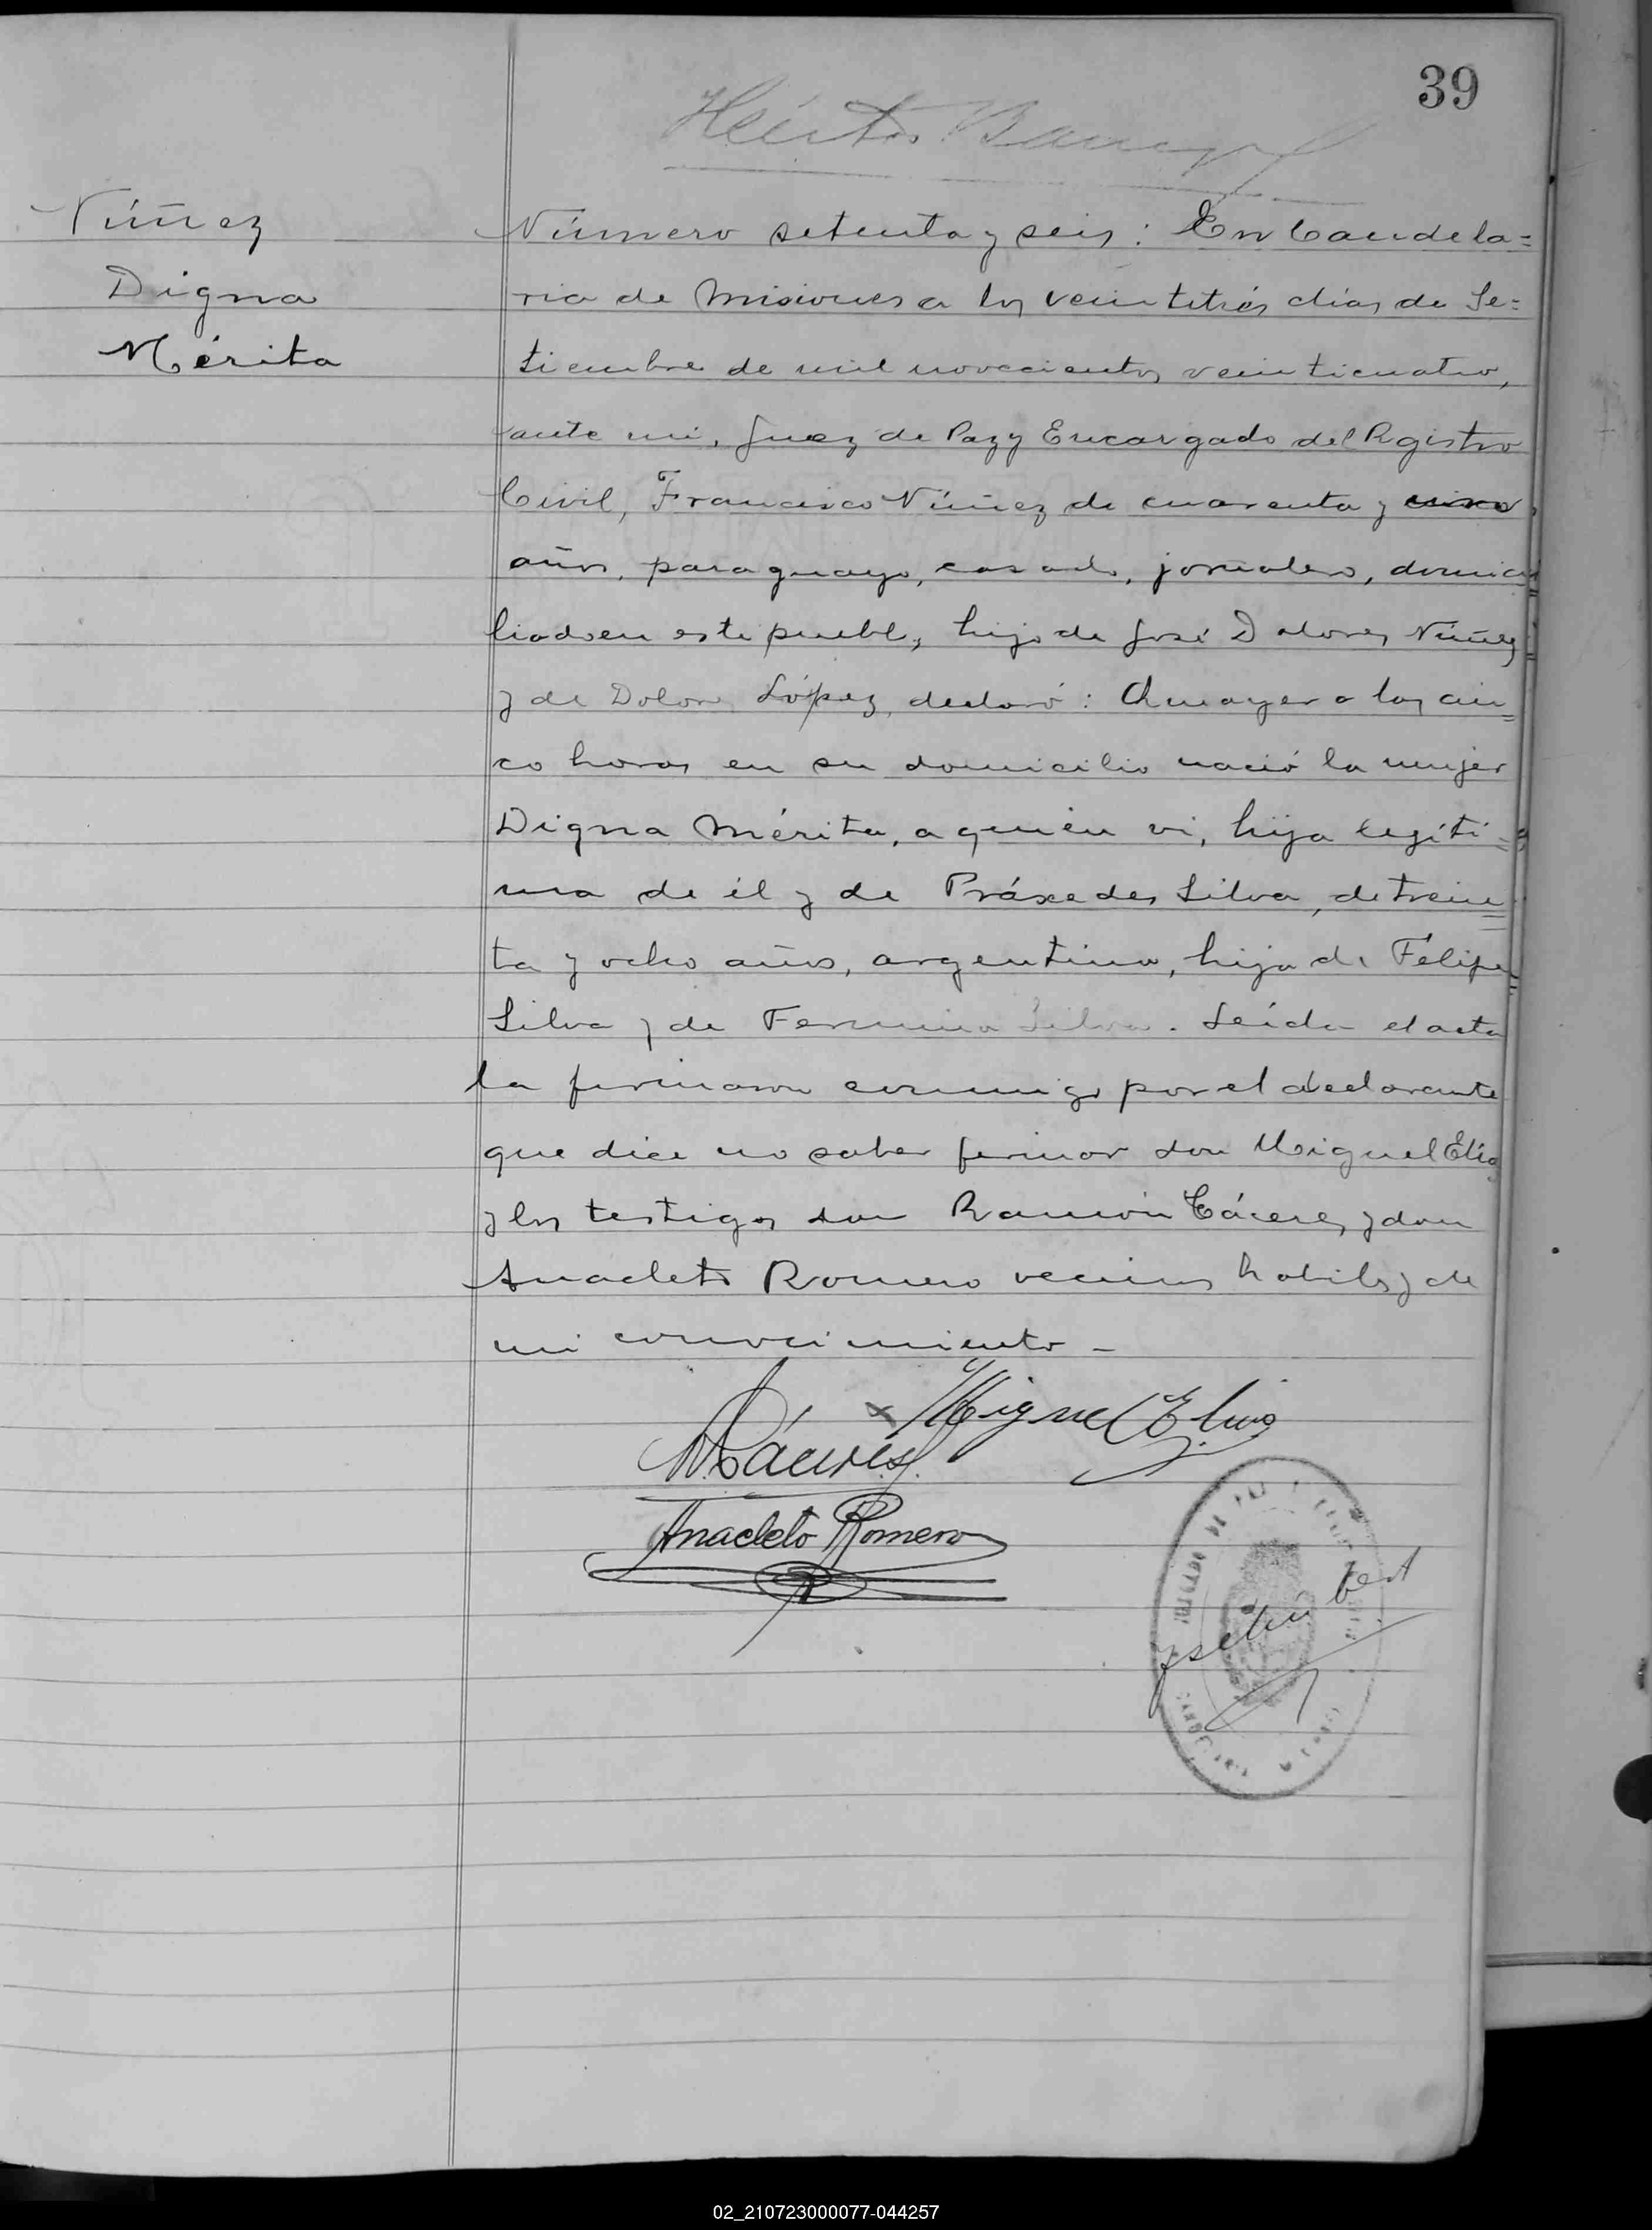 39
Núñez
Digna
Mérita
Número setenta y seis: En Candela=
ria de Misiones a los veintitrés días de Se=
tiembre de mil novecientos veinticuatro,
ante mi, Juez de Paz y Encargado del Rgistro
Civil, Francisco Núñez de cuarenta y cinco
años, paraguayo, casado, jornalero, domici
liado en este pueblo, hijo de José Dolores Núñez
y de Dolores López, declaró: Que ayer a las cin=
co horas en su domicilio nació la mujer
Digna Mérita, a quien vi, hija legíti=
ma de él y de Práxedes Silva, de trein=
ta y ocho años, argentina, hija de Felipe
Silva y de Fermina Silva. Leída el acta
la firmaron conmigo por el declarante
que dice no saber firmar don Miguel Elias
y los testigos don Ramón Cáceres y don
Anacleto Romero vecinos habiles y de
mi conocimiento -
Miguel Elias
R. Cáceres
Anacleto Romero
02_210723000077-044257